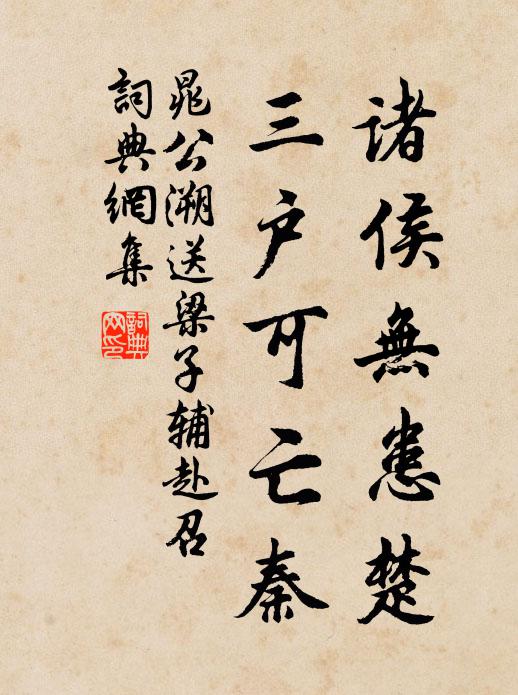 诸侯無患楚
三户可亡秦
晁公溯送梁子辅赴召
詞典網集
詞典網印